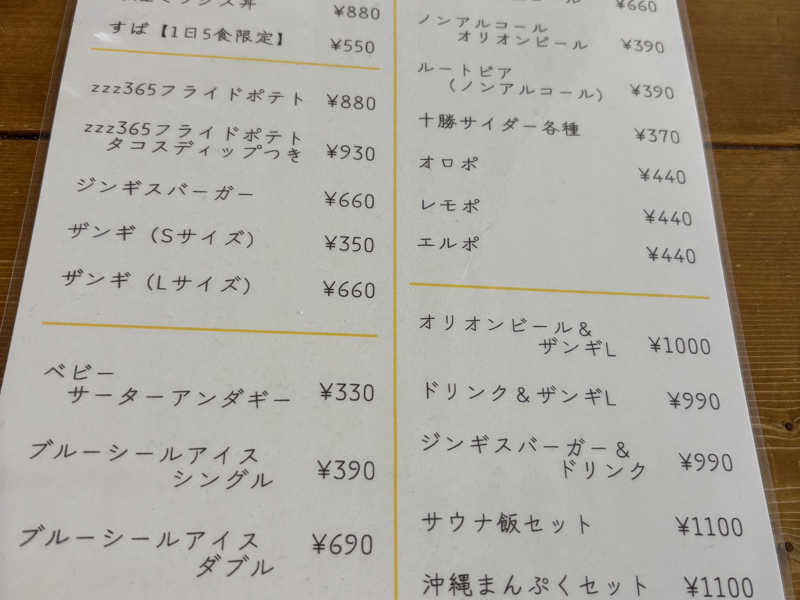 ¥880
すば【1日5食限定】 ¥550
zzz365フライドポテト ¥880
zzz365フライドポテト
タコスディップつき ¥930
ジンギスバーガー ¥660
ザンギ（Sサイズ） ¥350
ザンギ（Lサイズ） ¥660
ベビー
サーターアンダギー ¥330
ブルーシールアイス
シングル ¥390
ブルーシールアイス
ダブル ¥690
¥660
ノンアルコール
オリオンビール ¥390
ルートビア
（ノンアルコール） ¥390
十勝サイダー各種 ¥370
オロポ ¥440
レモポ ¥440
エルポ ¥440
オリオンビール＆
ザンギL ¥1000
ドリンク＆ザンギL ¥990
ジンギスバーガー＆
ドリンク ¥990
サウナ飯セット ¥1100
沖縄まんぷくセット ¥1100